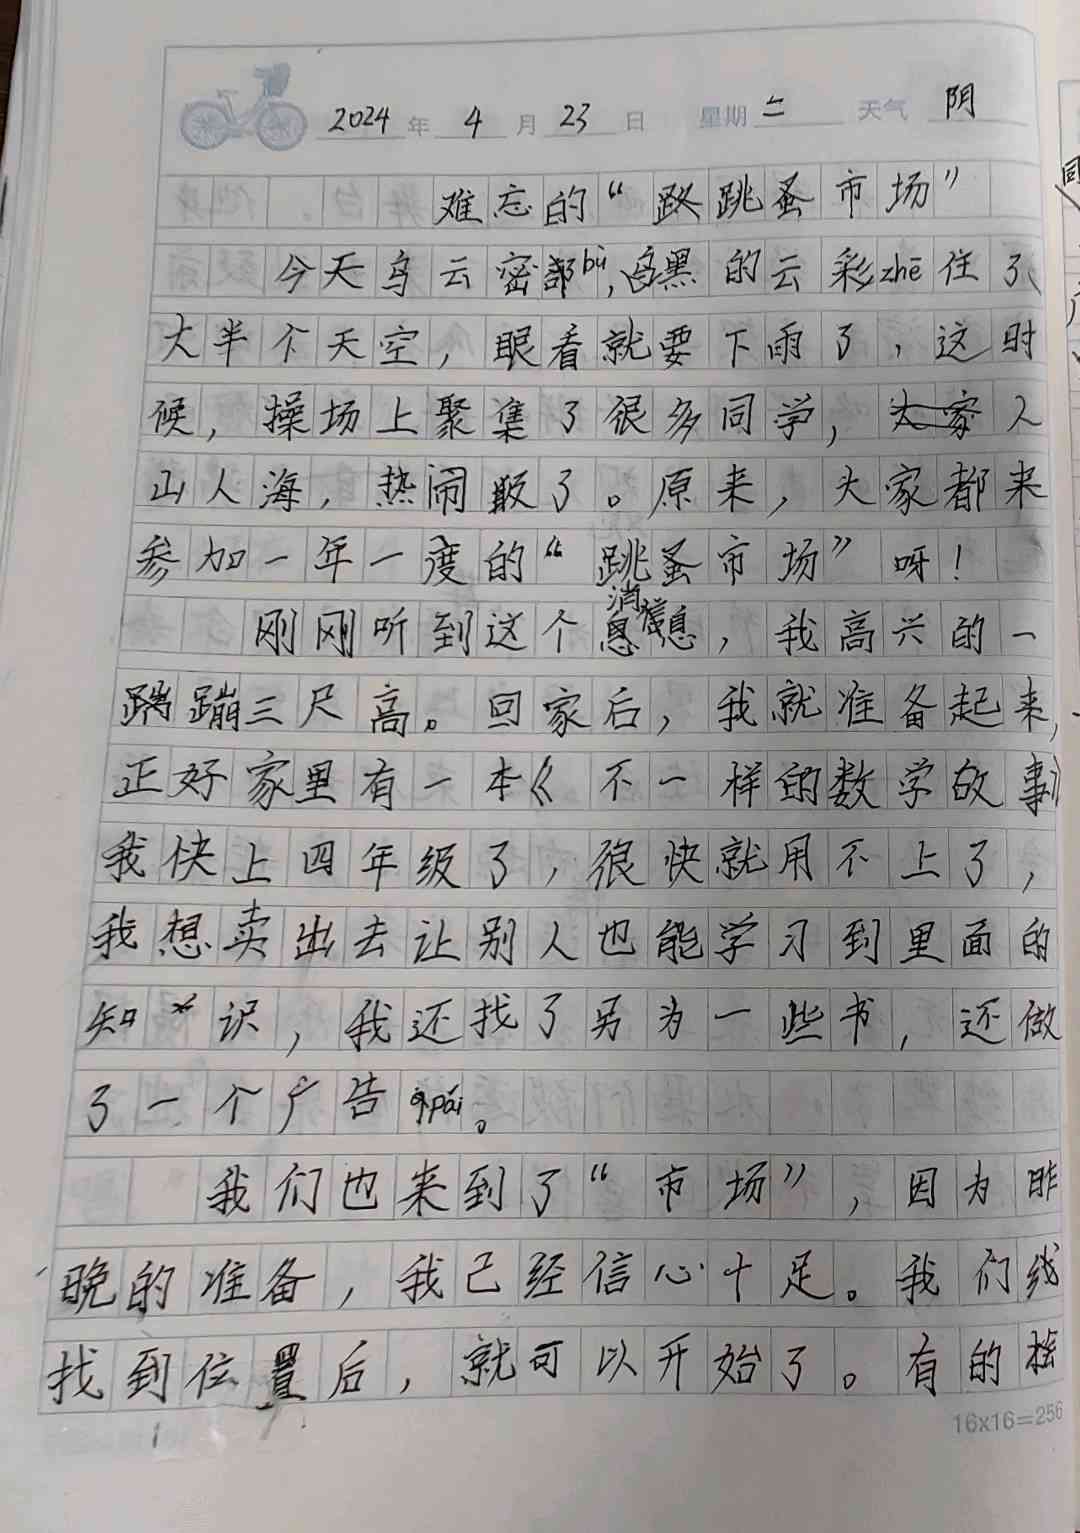 2024年 4月 23日 星期二 天气 阴
难忘的“跳蚤市场”
今天乌云密bù，乌黑的云彩zhē住了
大半个天空，眼看就要下雨了，这时
候，操场上聚集了很多同学，人
山人海，热闹极了。原来，大家都来
参加一年一度的“跳蚤市场”呀！
刚刚听到这个消息，我高兴的一
蹦三尺高。回家后，我就准备起来，
正好家里有一本《不一样的数学故事》
我快上四年级了，很快就用不上了，
我想卖出去让别人也能学习到里面的
知识，我还找了另为一些书，还做
了一个广告pái。
我们也来到了“市场”，因为昨
晚的准备，我己经信心十足。我们
找到位置后，就可以开始了。有的
16x16=256